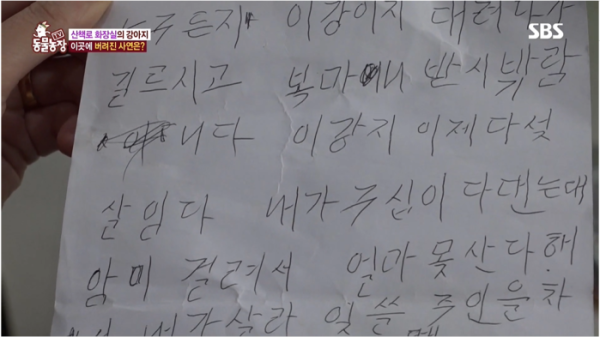 TV 동물농장
산책로 화장실의 강아지
이곳에 버려진 사연은?
SBS
누구든지 이강이지 대려다가
길드시고 복마니 반시뷔람
니다 이강지 이제다섯
살임다 내가주십이 다댄는대
암미 걸려서 언마 못산다.해
내가살라 잇쓸 주인을차